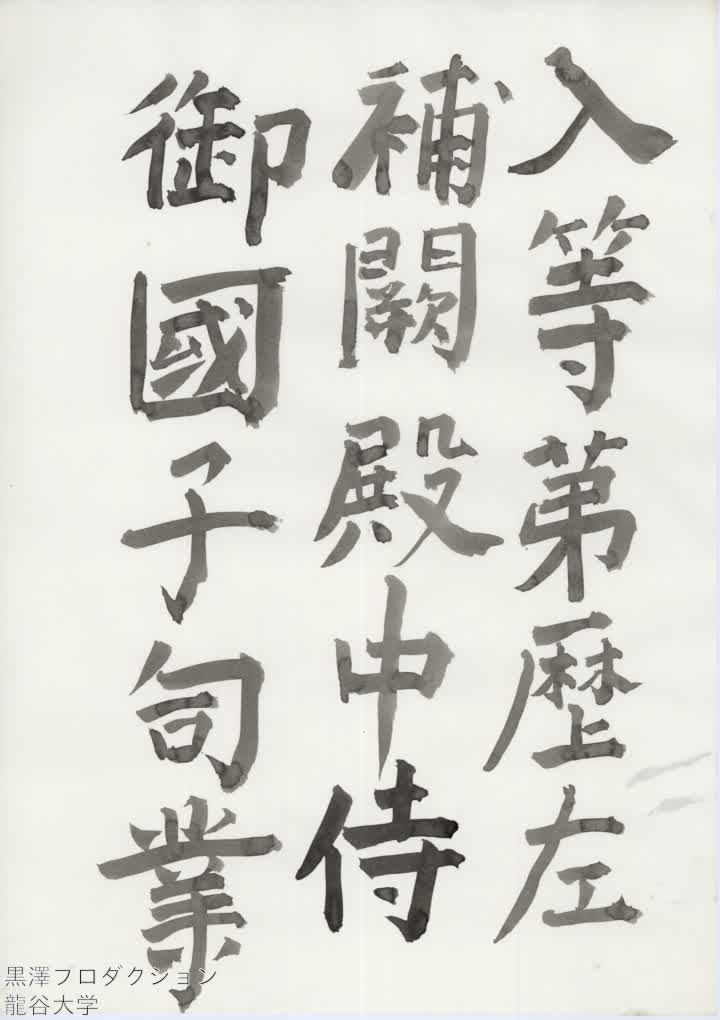 入等苐歷左
補闕殿中侍
御國子司業
黒澤プロダクション
龍谷大学